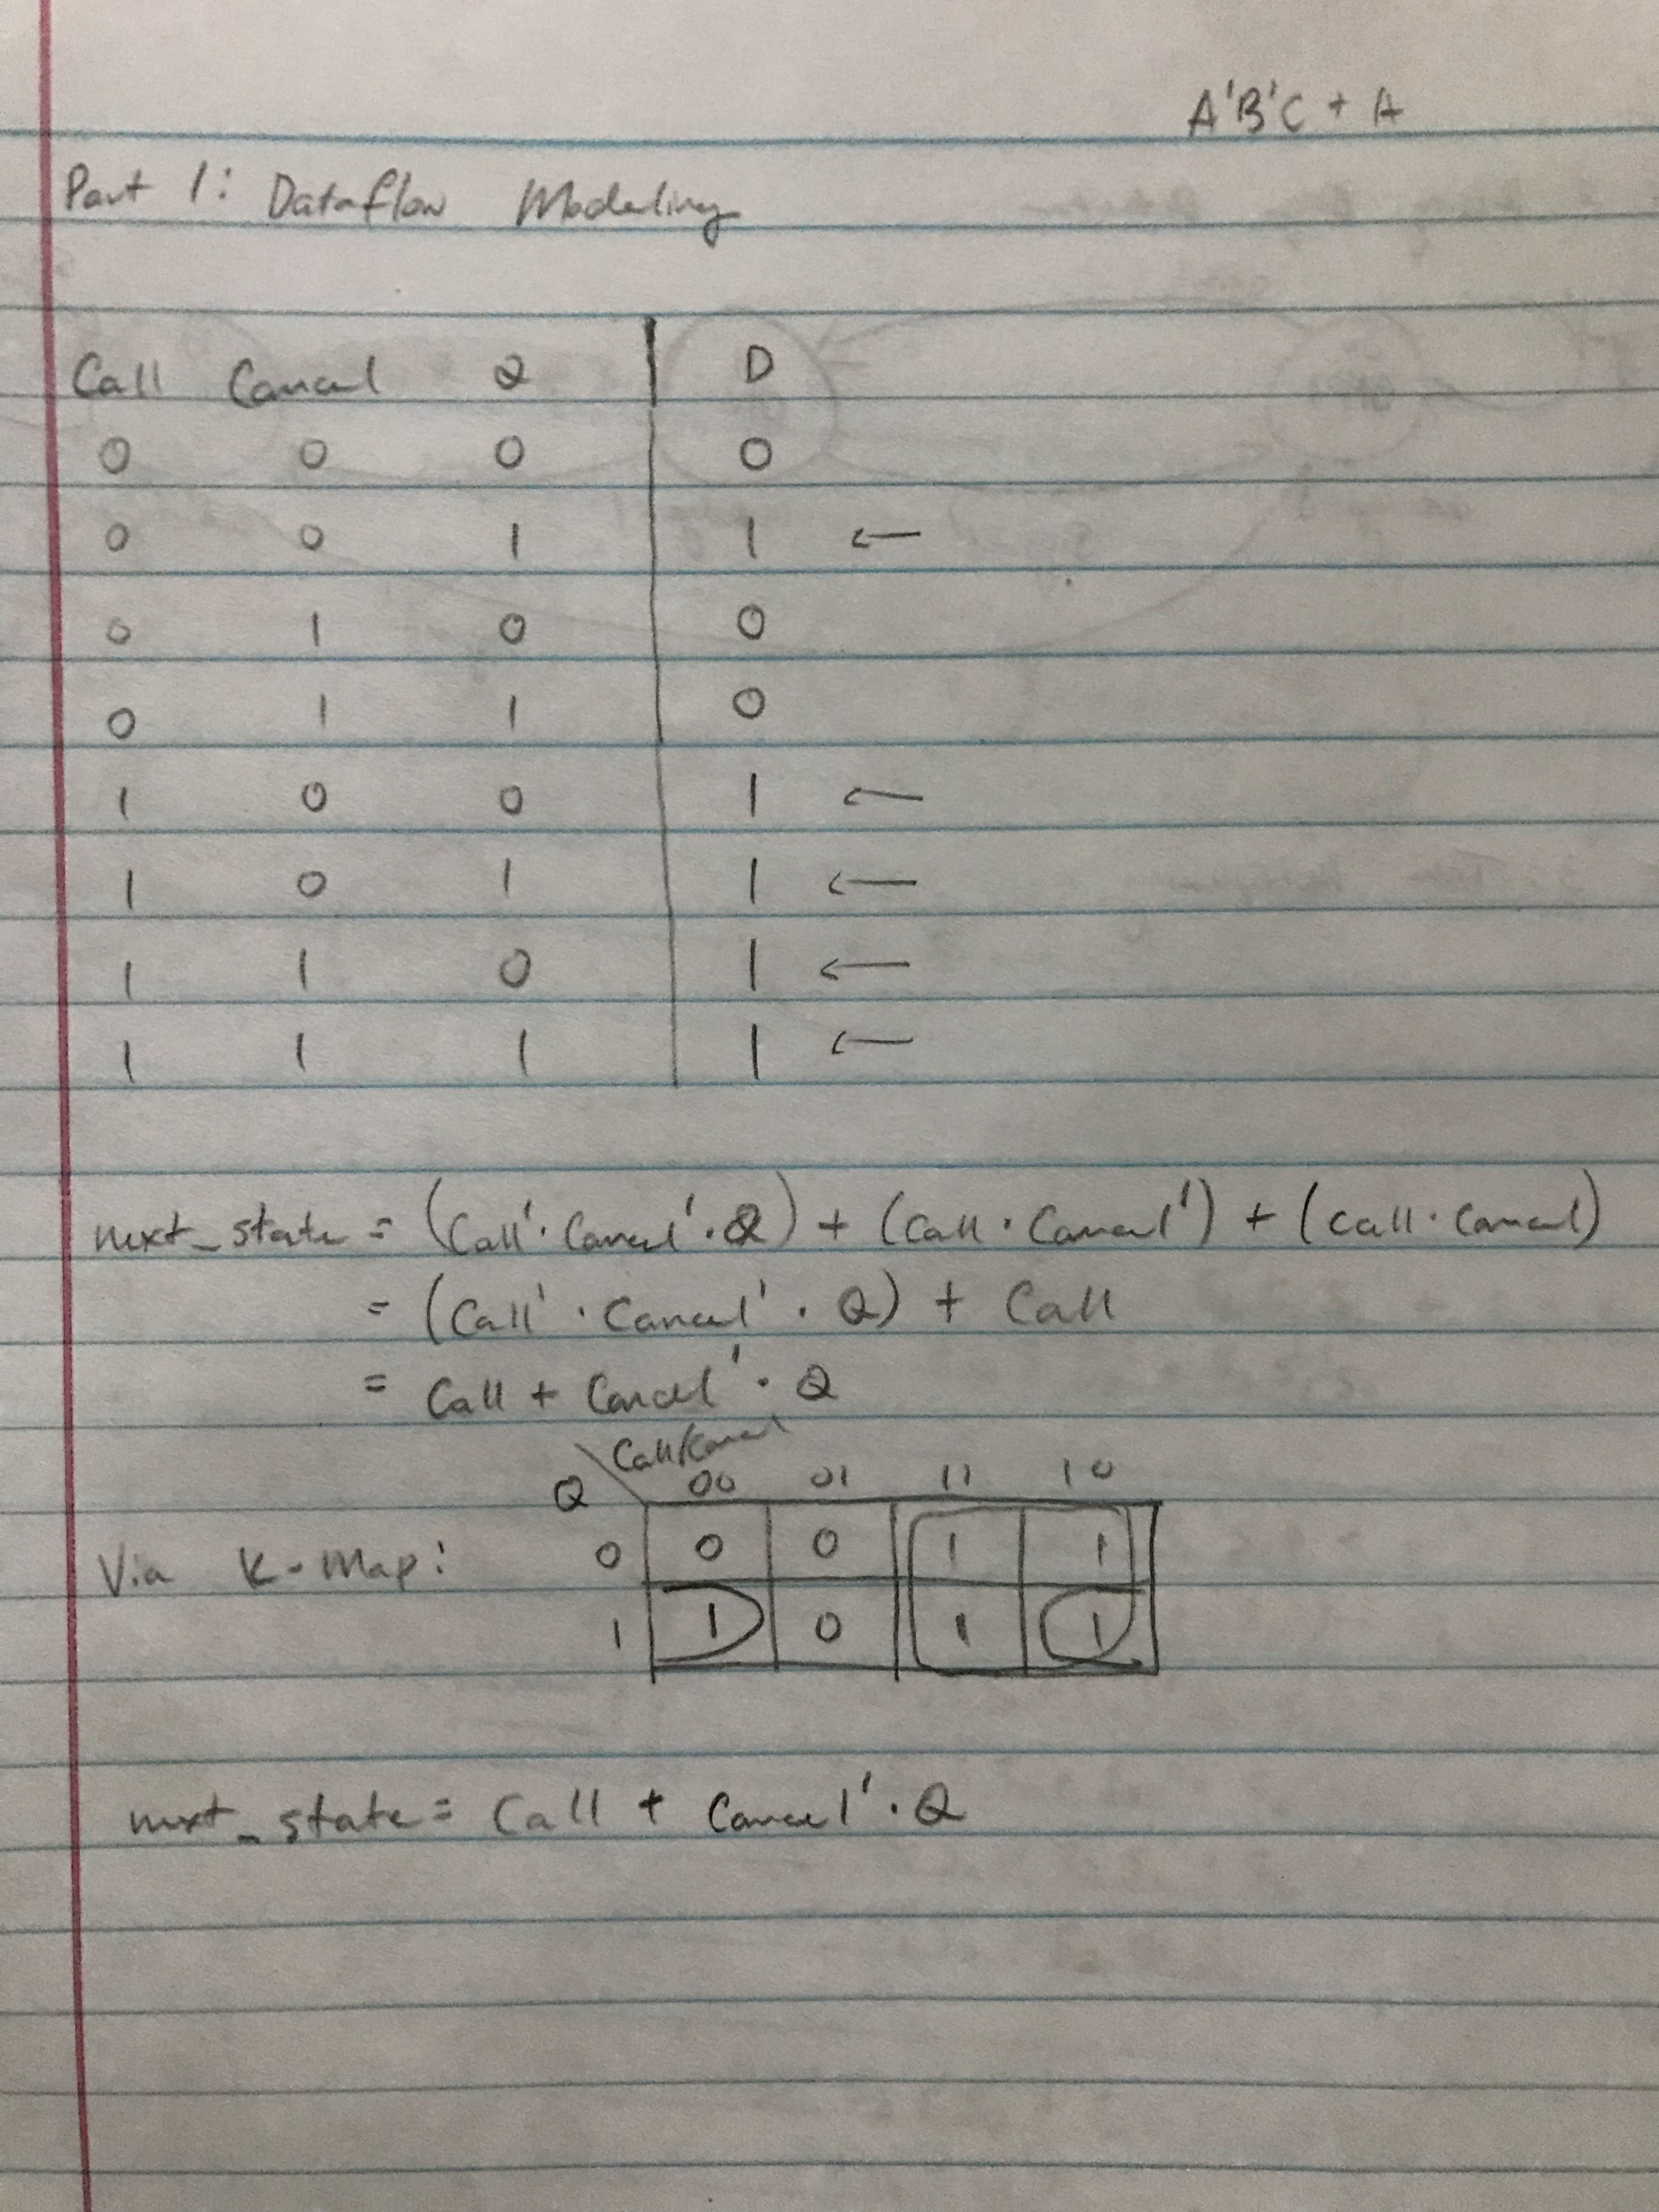 A'B'C + A
Part 1: Dataflow Modeling
Call Cancel Q D
0 0 0 0
0 0 1 1 ←
0 1 0 0
0 1 1 0
1 0 0 1 ←
1 0 1 1 ←
1 1 0 1 ←
1 1 1 1 ←
next_state = (Call'·Cancel'·Q) + (Call·Cancel') + (Call·Cancel)
= (Call'·Cancel'·Q) + Call
= Call + Cancel'·Q
Q\Call/Cancel 00 01 11 10
Via K-Map: 0 0 0 1 1
1 1 0 1 1
next_state = Call + Cancel'·Q